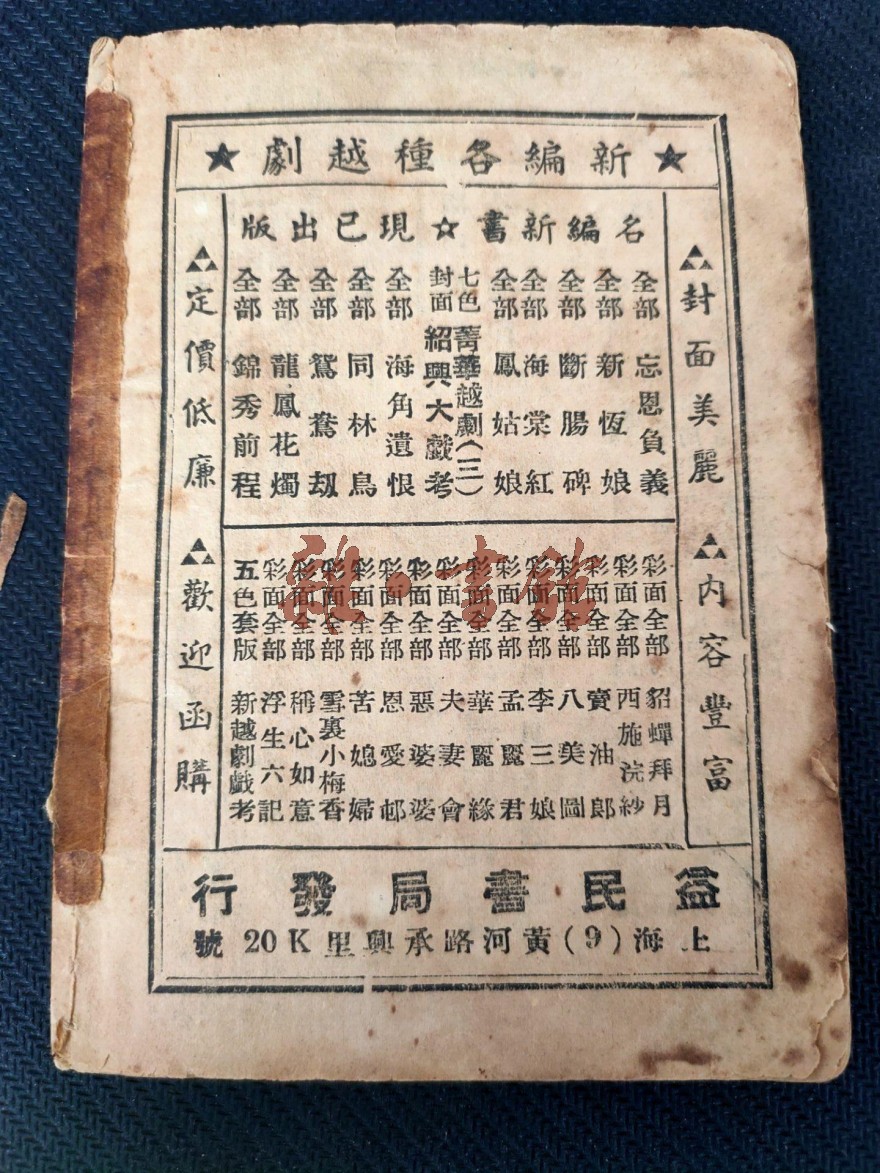 ★新編各種越劇★
名編新書☆現已出版
封面美麗
內容豐富
全部 忘恩負義
全部 新恆娘
全部 斷腸碑
全部 海棠紅
全部 鳳姑娘
七色 菁華越劇(三)
封面 紹興大戲考
全部 海角遺恨
全部 同林鳥
全部 鴛鴦劫
全部 龍鳳花燭
全部 錦秀前程
彩面全部 貂蟬拜月
彩面全部 西施浣紗
彩面全部 賣油郎
彩面全部 八美圖
彩面全部 李三娘
彩面全部 孟麗君
彩面全部 華麗緣
彩面全部 夫妻會
彩面全部 惡婆婆
彩面全部 恩愛邨
彩面全部 苦媳婦
彩面全部 雪裏小梅香
彩面全部 稱心如意
彩面全部 浮生六記
五色套版 新越劇戲考
定價低廉
歡迎函購
益民書局發行
上海(9)黃河路承興里K20號